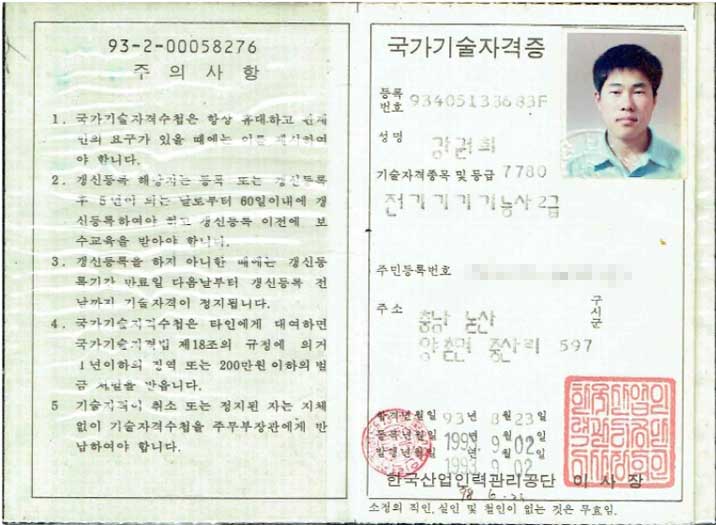 93-2-00058276
주 의 사 항
1. 국가기술자격수첩은 항상 휴대하고 관계
인의 요구가 있을 때에는 이를 제시하여
야 합니다.
2. 갱신등록 해당자는 등록 또는 갱신등록
후 5년이 되는 날로부터 60일이내에 갱
신등록하여야 하고 갱신등록 이전에 보
수교육을 받아야 합니다.
3. 갱신등록을 하지 아니한 때에는 갱신등
록기가 만료일 다음날부터 갱신등록 전
날까지 기술자격이 정지됩니다.
4. 국가기술자격수첩은 타인에게 대여하면
국가기술자격법 제18조의 규정에 의거
1년이하의 징역 또는 200만원이하의 벌
금 처벌을 받습니다.
5 기술자격이 취소 또는 정지된 자는 지체
없이 기술자격수첩을 주무부장관에게 반
납하여야 합니다.
국가기술자격증
등록
번호 93405133683F
성명
기술자격종목 및 등급 7780
전기기기기능사2급
주민등록번호
주소
구
시
군
충남 논산
양촌면 중산리 597
합격년월일 93년 8월23일
등록년월일 1993년 9월02일
발행년월일 1993. 9. 02
한국산업인력관리공단 이사장
소정의 직인, 실인 및 철인이 없는 것은 무효임.